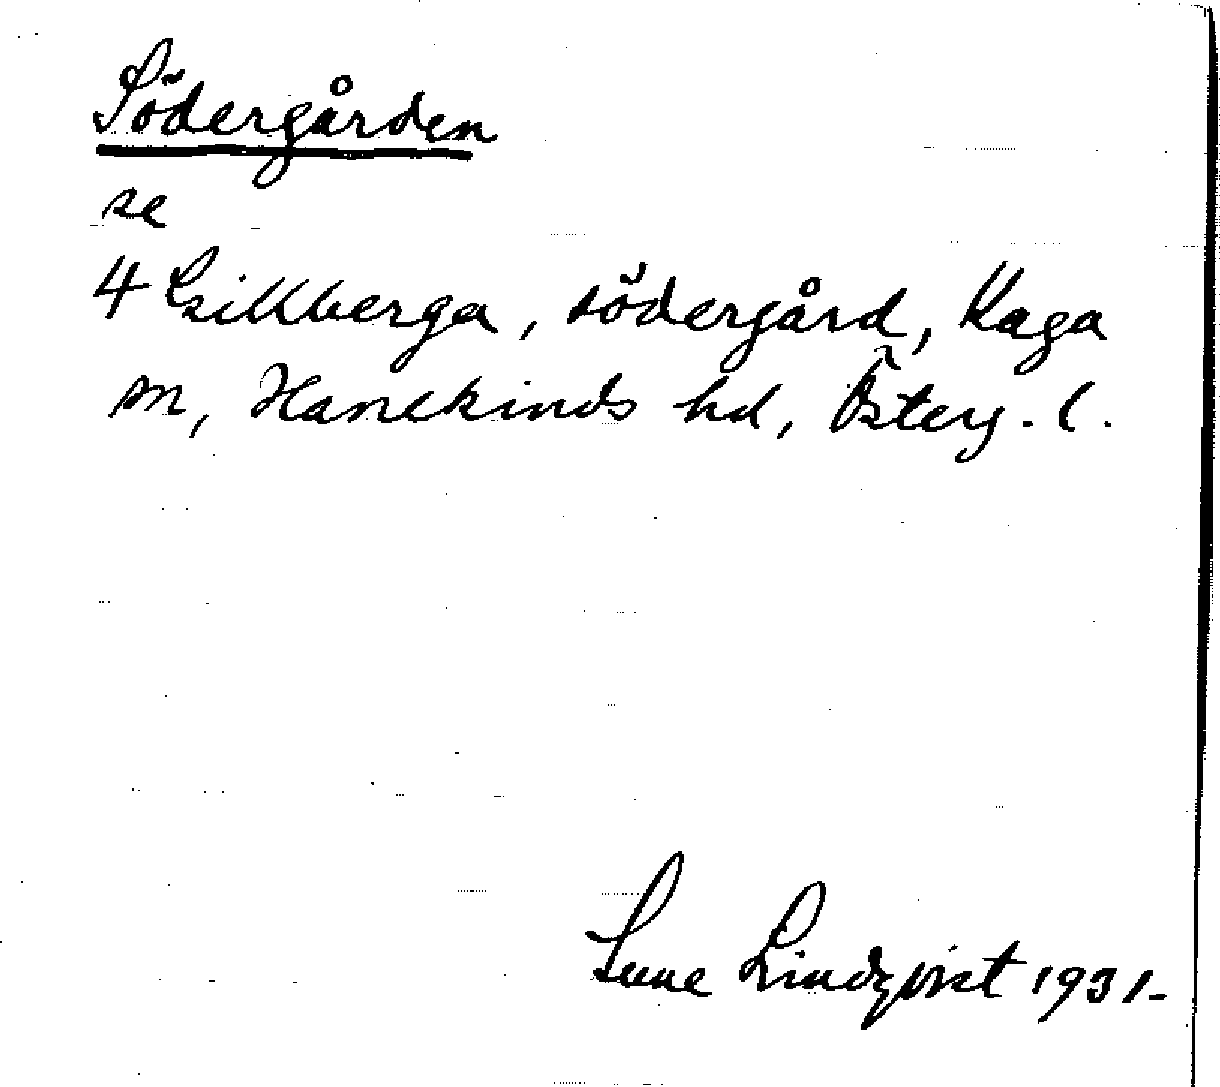 Södergården
se
4 Gillberga, södergård, Kaga
sn, Hanekinds hd, Österg. l.
Sune Lindqvist 1931-